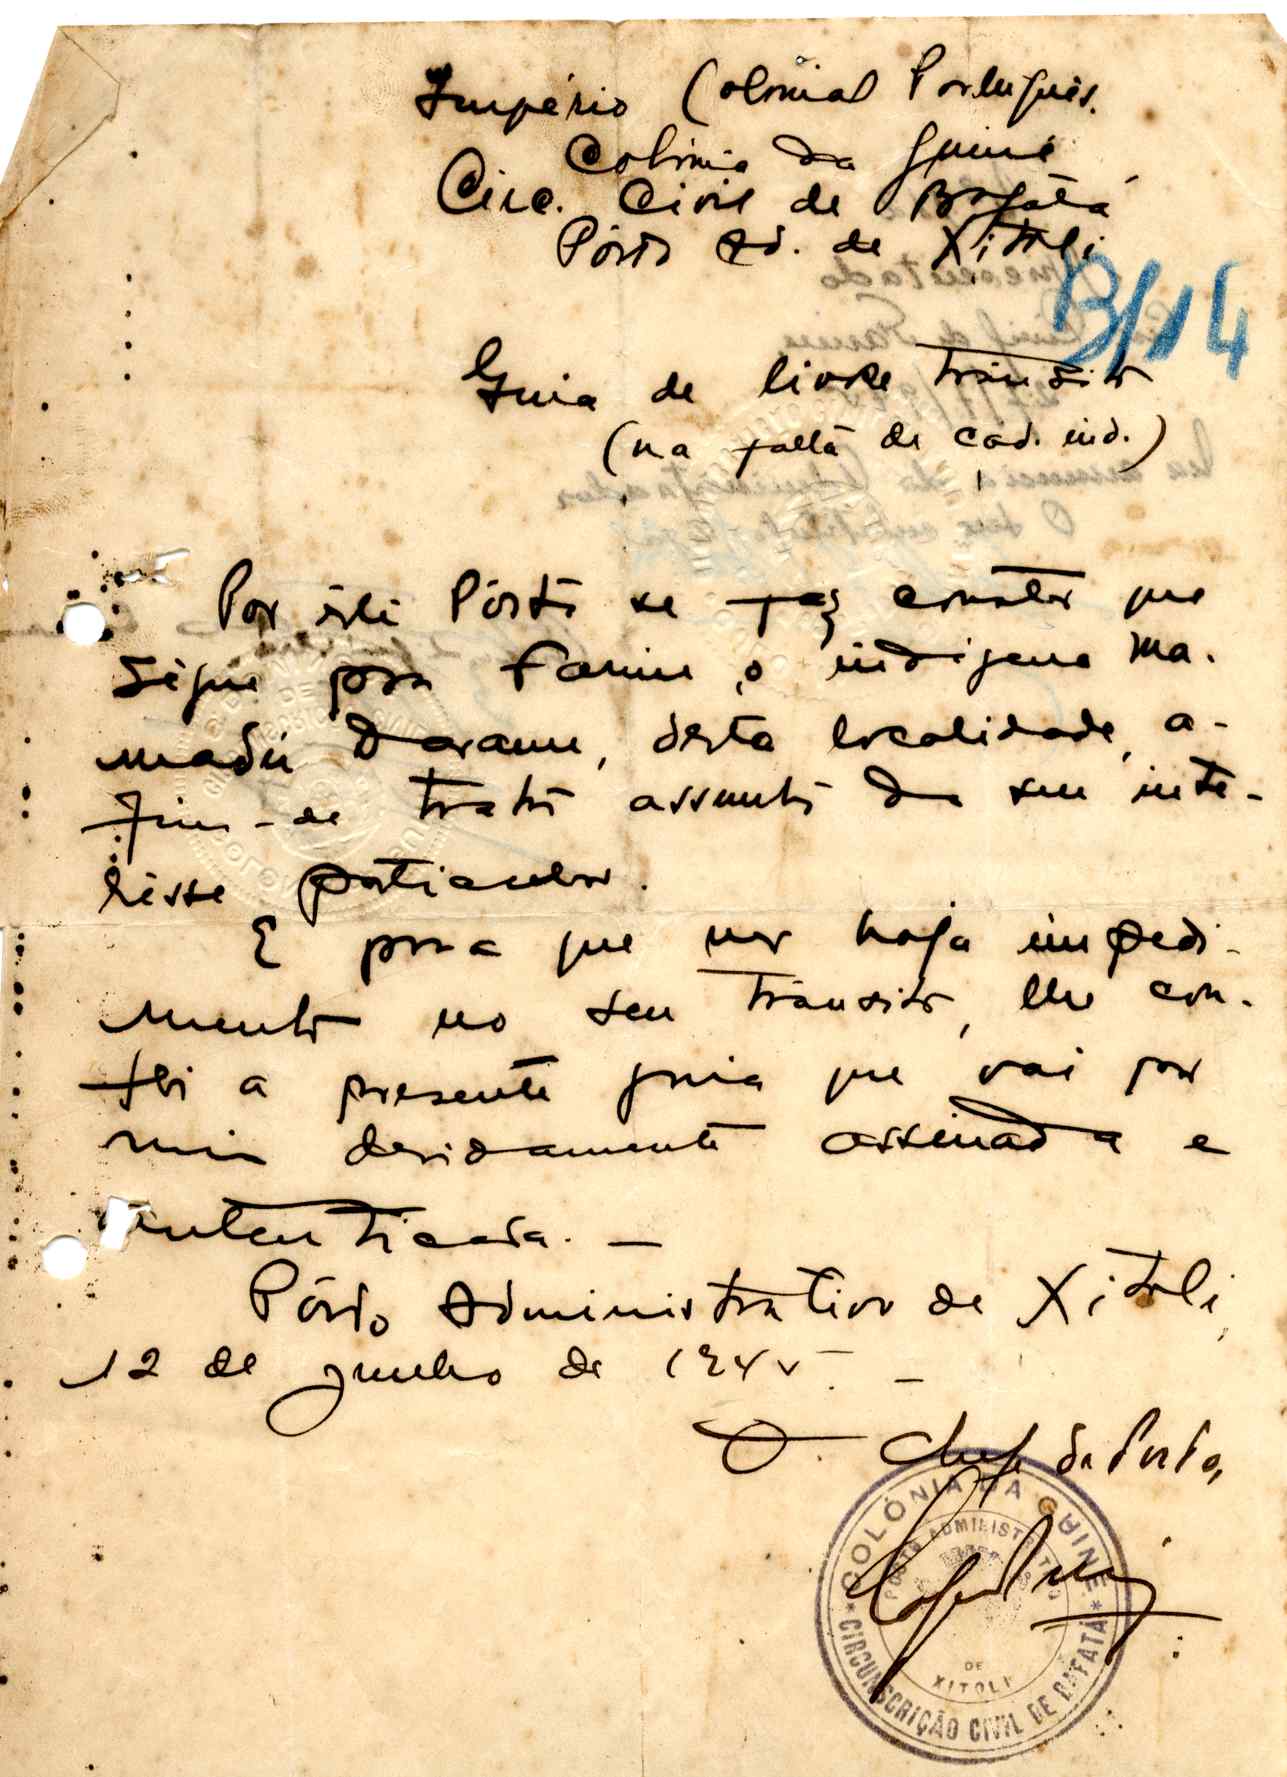 Império Colonial Português.
Colónia da Guiné
Circ. Civil de Bafatá
Pôsto Ad. de Xitoli
B/14
Guia de livre trânsito
(na falta de cad. ind.)
Por êste Pôsto se faz constar que
segue para Farim, o indigena Ma-
madú Darame, desta localidade, a-
fim-de tratar assunto de seu inte-
rêsse particular.
E para que não haja impedi-
mento no seu trânsito, lhe con-
feri a presente guia que vai por
mim devidamente assinada e
autenticada. —
Pôsto Administrativo de Xitoli,
12 de junho de 1945. —
O Chefe do Posto,
COLÓNIA DA GUINE
POSTO ADMINISTRATIVO
DE
XITOLI
* CIRCUNSCRIÇÃO CIVIL DE BAFATÁ *